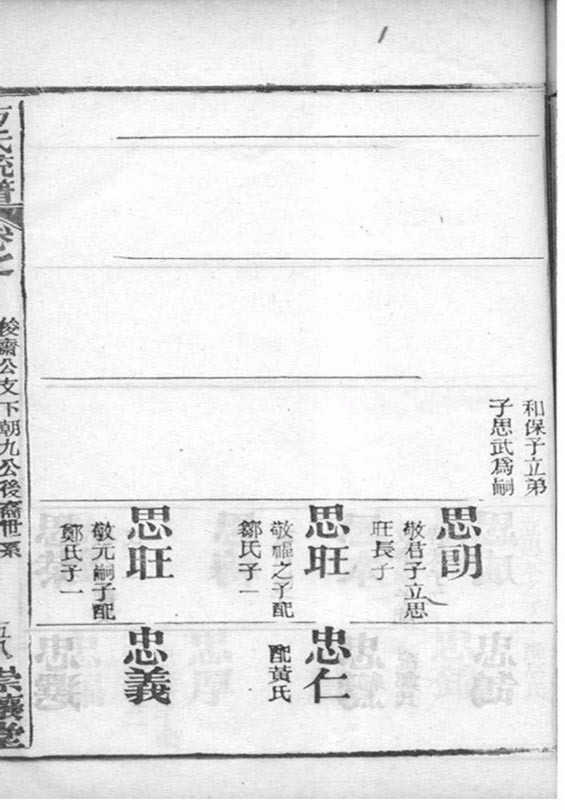 和保子立弟
子思武爲嗣
思明
敬君子立思
旺長子
思旺
敬福之子配
鄒氏子一
忠仁
配黃氏
思旺
敬元嗣子配
鄭氏子一
忠義
方氏統譜
卷之一
後齋公支下朝九公後裔世系
五八
崇讓堂